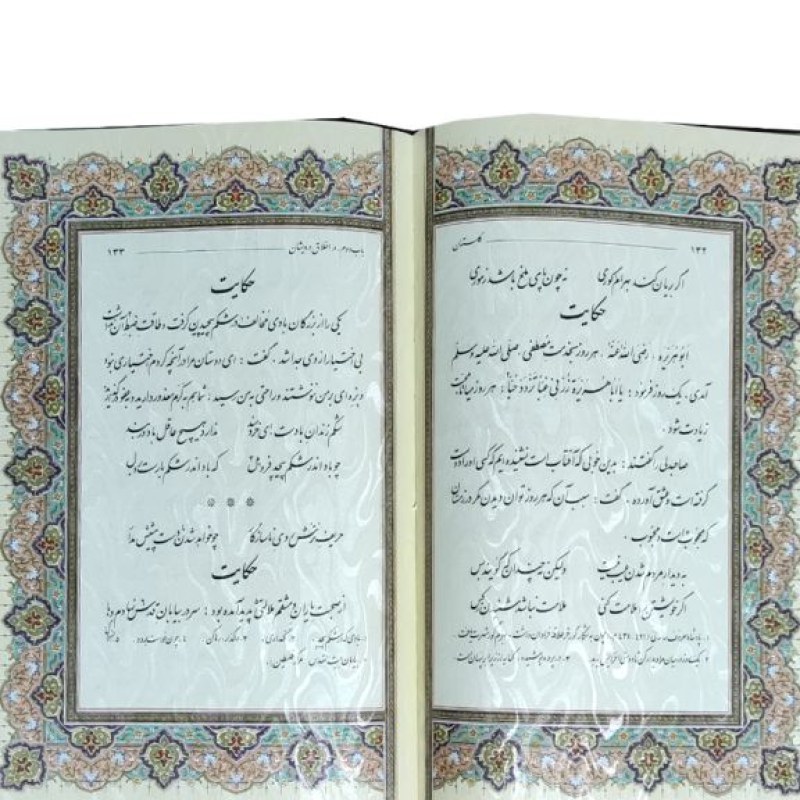 ۱۳۲ گلستان
اگر بریان کند بهرام گوری نه چون پای ملخ باشد ز موری
حکایت
ابوهُرَیْرَه ، رضی اللهُ عَنْهُ ، هر روز بخدمت مصطفی صلی الله علیه و سلم
آمدی . یک روز فرمود : یا اَبا هُرَیْرَة زُرْنی غِبّاً تَزْدَدْ حُبّاً : هر روز میا تا محبت
زیادت شود .
صاحبدلی را گفتند : بدین خوبی که آفتاب است نشنیده‌ایم که کسی او را دوست
گرفته است و عشق آورده . گفت : سبب آن که هر روز توان دیدن مگر در زمستان
که محجوبست و محبوب .
به دیدار مردم شدن عیب نیست ولیکن نه چندان که گویند بس
اگر خویشتن را ملامت کنی ملامت نباید شنیدن ز کس
۱۳۳ باب دوم ، در اخلاق درویشان
حکایت
یکی را از بزرگان بادی مخالف در شکم پیچیدن گرفت و طاقت ضبط آن نداشت
بی اختیار از وی جدا شد . گفت : ای دوستان مرا در آنچه کردم اختیاری نبود
و بزه‌ای بر من ننوشتند و راحتی به من رسید : شما هم به کرم معذور دارید
شکم زندان بادست ای خردمند ندارد هیچ عاقل باد در بند
چو باد اندر شکم پیچد فرو هل که باد اندر شکم بارست بر دل
* * *
حریف ترش روی ناسازگار چو خواهد شدن دست پیشش مدار
حکایت
از صحبت یاران دمشقم ملالتی پدید آمده بود : سر در بیابان قدس نهادم و با